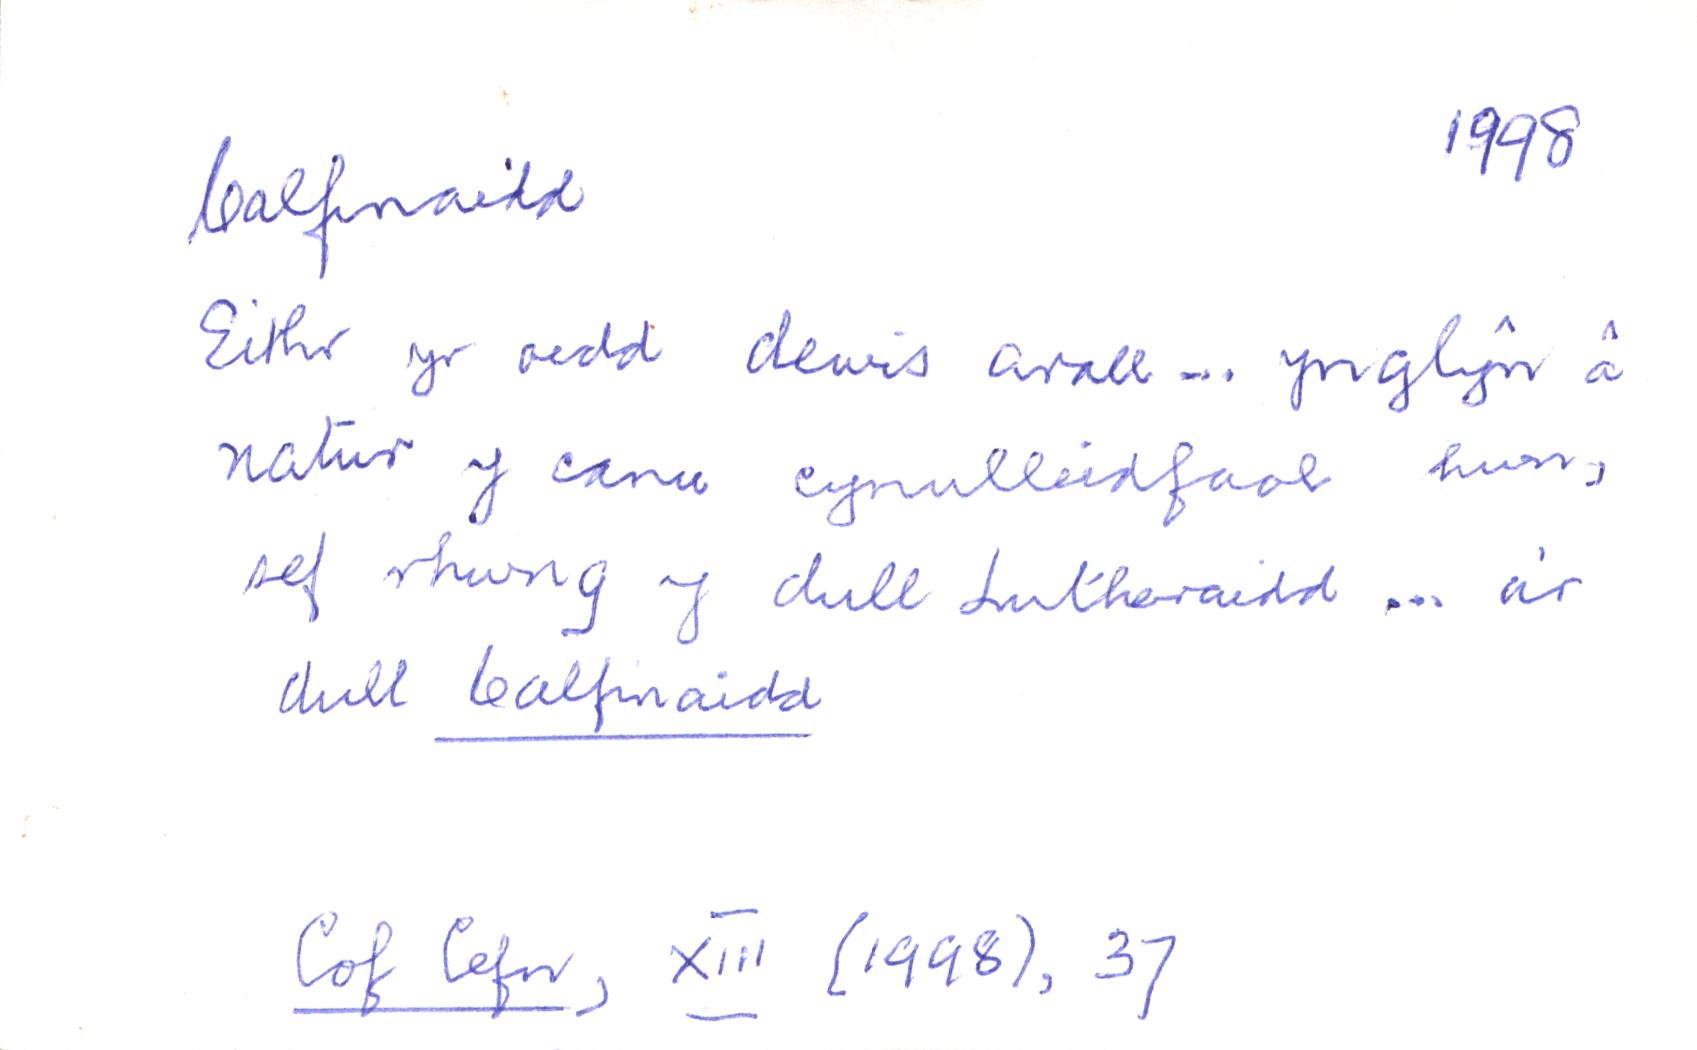 1998
Calfinaidd
Eithr yr oedd dewis arall... ynglŷn â
natur y canu cynulleidfaol hwn,
sef rhwng y dull Lutheraidd ... a'r
dull Calfinaidd
Cof Cefn, XIII (1998), 37